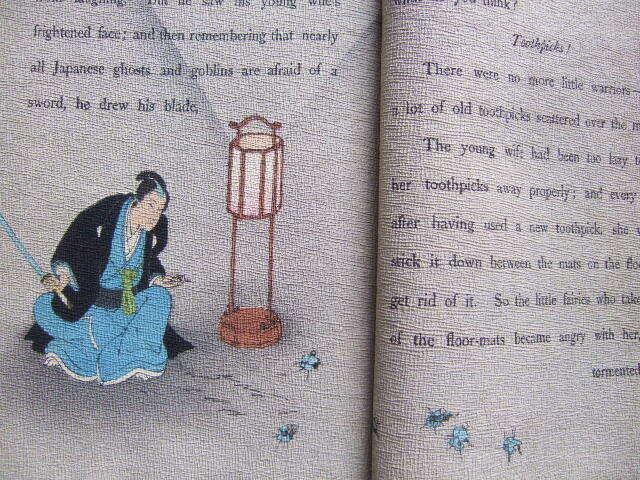 laughing. But he saw his young wife's
frightened face; and then remembering that nearly
all Japanese ghosts and goblins are afraid of a
sword, he drew his blade,
you think?
Toothpicks!
There were no more little warriors—
a lot of old toothpicks scattered over the
The young wife had been too lazy
her toothpicks away properly; and every
after having used a new toothpick, she
stick it down between the mats on the
get rid of it. So the little fairies who take
of the floor-mats became angry with her,
tormented